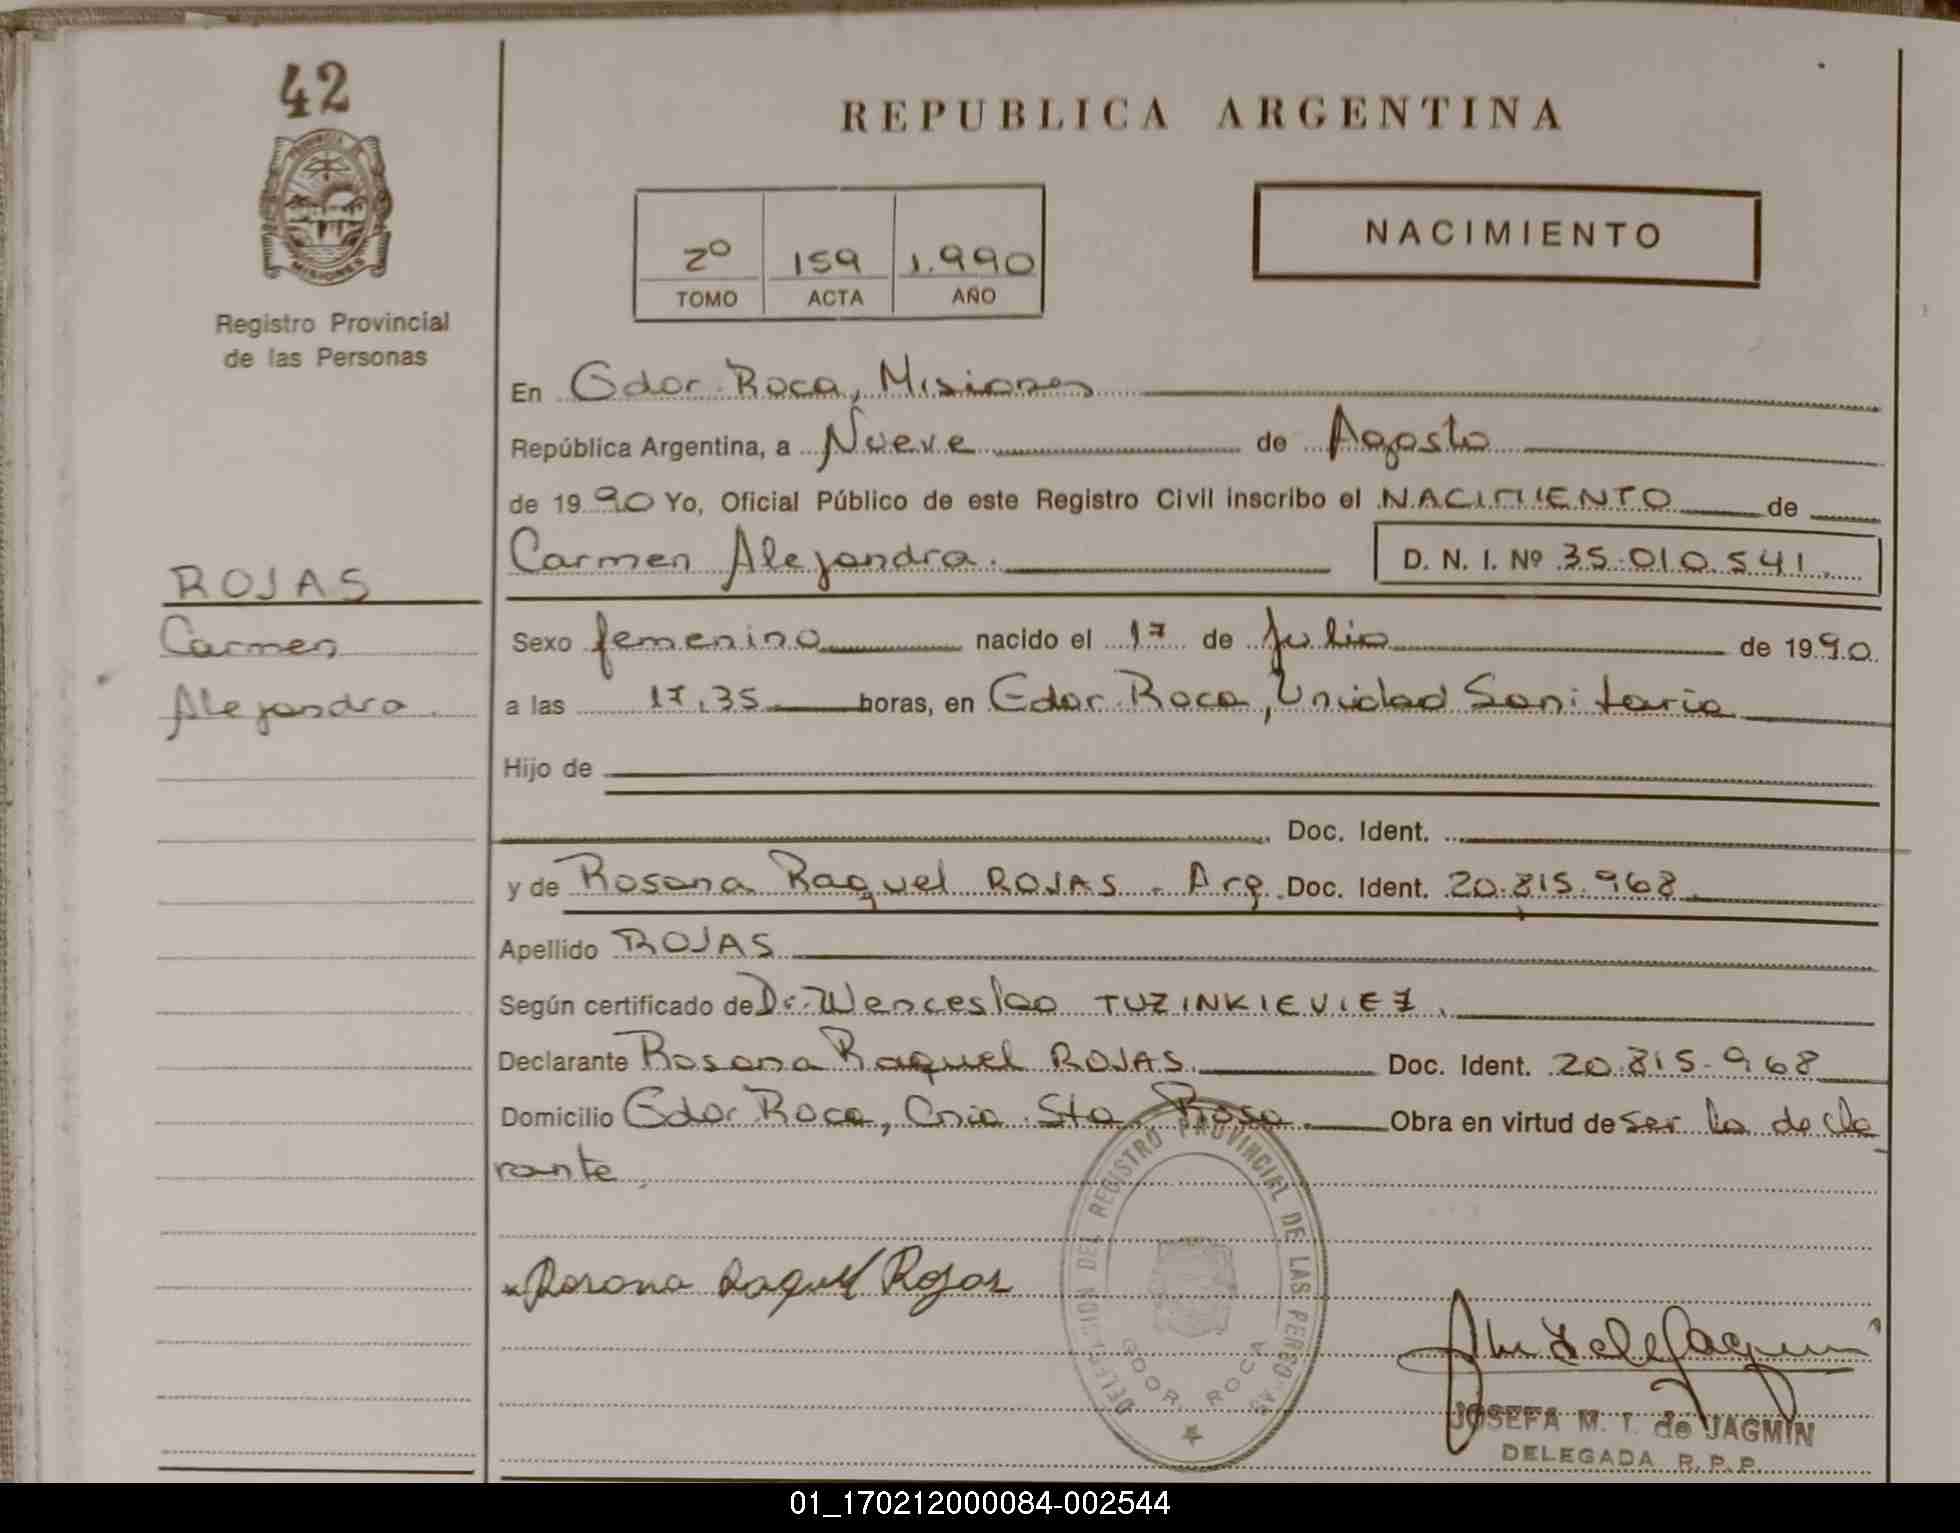 42
PROVINCIA DE MISIONES
Registro Provincial
de las Personas
REPUBLICA ARGENTINA
2º 159 1.990
TOMO ACTA AÑO
NACIMIENTO
En Gdor. Roca, Misiones
República Argentina, a Nueve de Agosto
de 1990 Yo, Oficial Público de este Registro Civil inscribo el NACIMIENTO de
Carmen Alejandra. D. N. I. Nº 35.010.541.
ROJAS
Carmen
Alejandra.
Sexo femenino nacido el 17 de Julio de 1990
a las 17,35 horas, en Gdor. Roca, Unidad Sanitaria
Hijo de
Doc. Ident.
y de Rosana Raquel ROJAS - Arg. Doc. Ident. 20.815.968
Apellido ROJAS
Según certificado de Dr. Wenceslao TUZINKIEVIEZ.
Declarante Rosana Raquel ROJAS. Doc. Ident. 20.815.968
Domicilio Gdor. Roca, Cnia. Sta. Rosa. Obra en virtud de ser la decla
rante.
DELEGACION DEL REGISTRO PROVINCIAL DE LAS PERSONAS
GDOR. ROCA
Rosana Raquel Rojas
JOSEFA M. T. de JAGMIN
DELEGADA R. P. P.
01_170212000084-002544